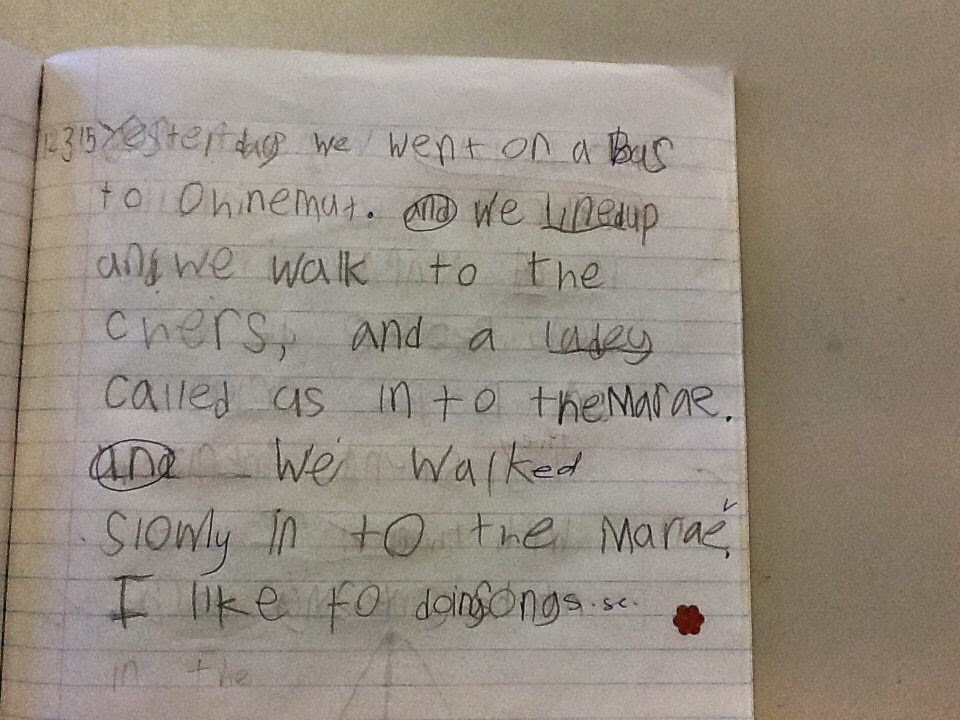 12315 Yesterday we went on a Bus
to Ohinemut. and we Linedup
and we walk to the
chers, and a ladey
called us in to the Marae.
and we walked
slowly in to the Marae.
I like to doing songs. sc.
in the